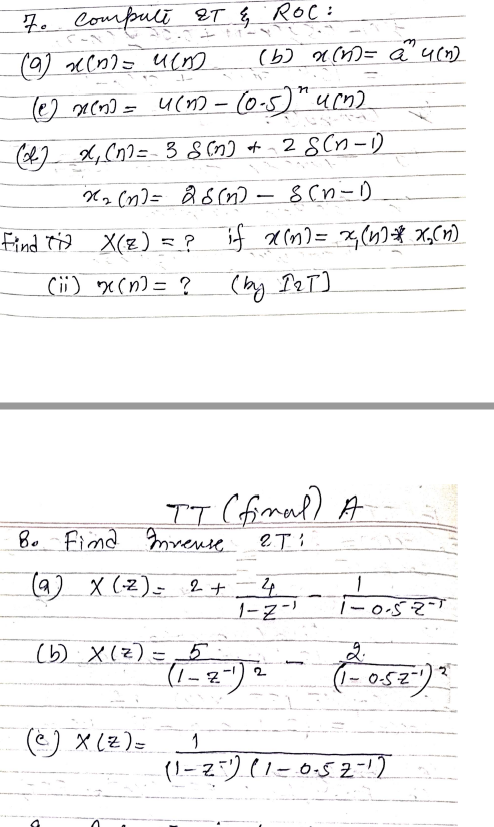 7. Compute ZT & ROC:
(a) x(n) = u(n) (b) x(n) = aⁿ u(n)
(c) x(n) = u(n) - (0.5)ⁿ u(n)
(d) x₁(n) = 3 δ(n) + 2 δ(n-1)
x₂(n) = 2δ(n) - δ(n-1)
Find (i) X(z) = ? if x(n) = x₁(n) * x₂(n)
(ii) x(n) = ? (by IZT]
TT (final) A
8. Find Inverse ZT:
(a) X(z) = 2 + 4/(1-z⁻¹) - 1/(1-0.5z⁻¹)
(b) X(z) = 5/(1-z⁻¹)² - 2/(1-0.5z⁻¹)²
(c) X(z) = 1/((1-z⁻¹)(1-0.5z⁻¹))